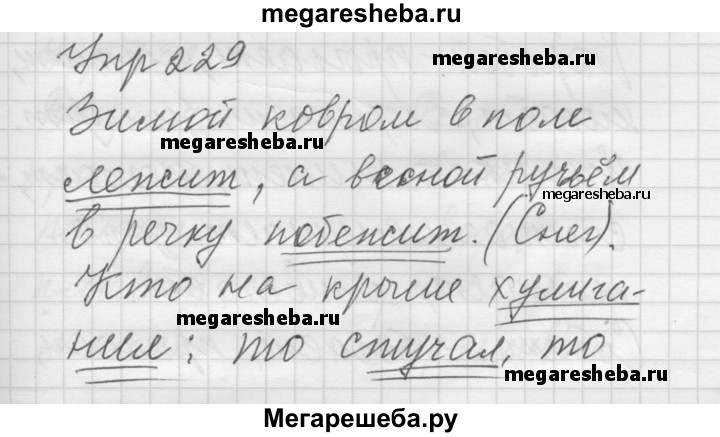 megaresheba.ru
Упр 229
megaresheba.ru
Зимой ковром в поле
megaresheba.ru
лежит, а весной ручьём
megaresheba.ru
в речку побежит. (Снег).
Кто на крыше хулига-
megaresheba.ru
нил: то стучал, то
megaresheba.ru
Мегарешеба.ру